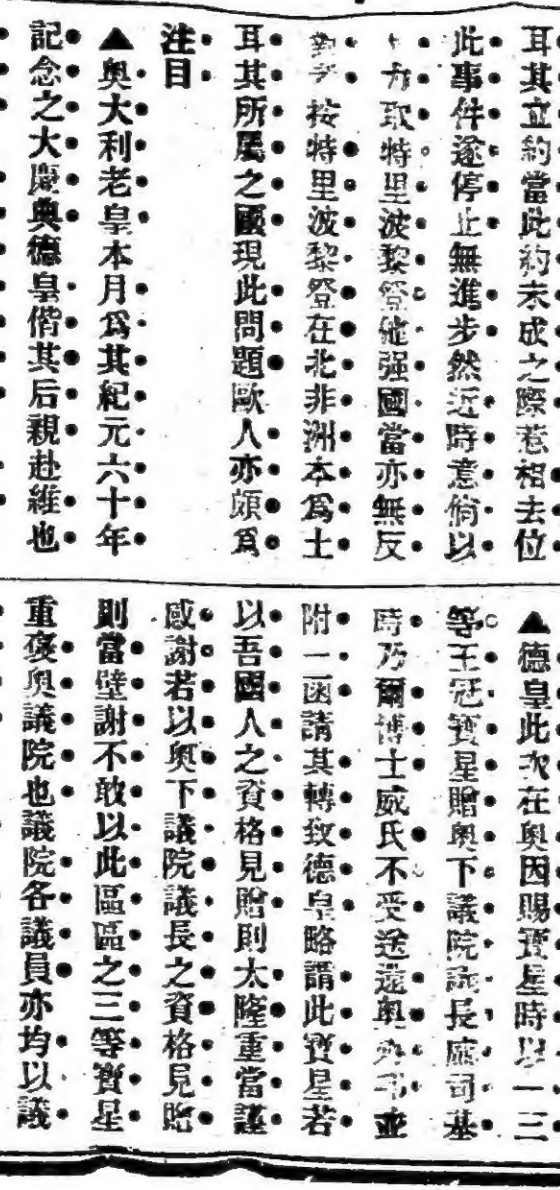 耳其立約當此約未成之際惹相去位
此事件遂停止無進步然近時意倘以
力取特里波黎登他强國當亦無反
對予按特里波黎登在北非洲本爲土
耳其所屬之國現此問題歐人亦頗爲
注目
▲奧大利老皇本月爲其紀元六十年
記念之大慶典德皇偕其后親赴維也
▲德皇此次在奧因賜寶星時以一三
等王冠寶星贈奧下議院議長威司基
時乃爾博士威氏不受送還奧外部並
附一函請其轉致德皇略謂此寶星若
以吾國人之資格見贈則太隆重當謹
感謝若以奧下議院議長之資格見贈
則當壁謝不敢以此區區之三等寶星
重褻奧議院也議院各議員亦均以議